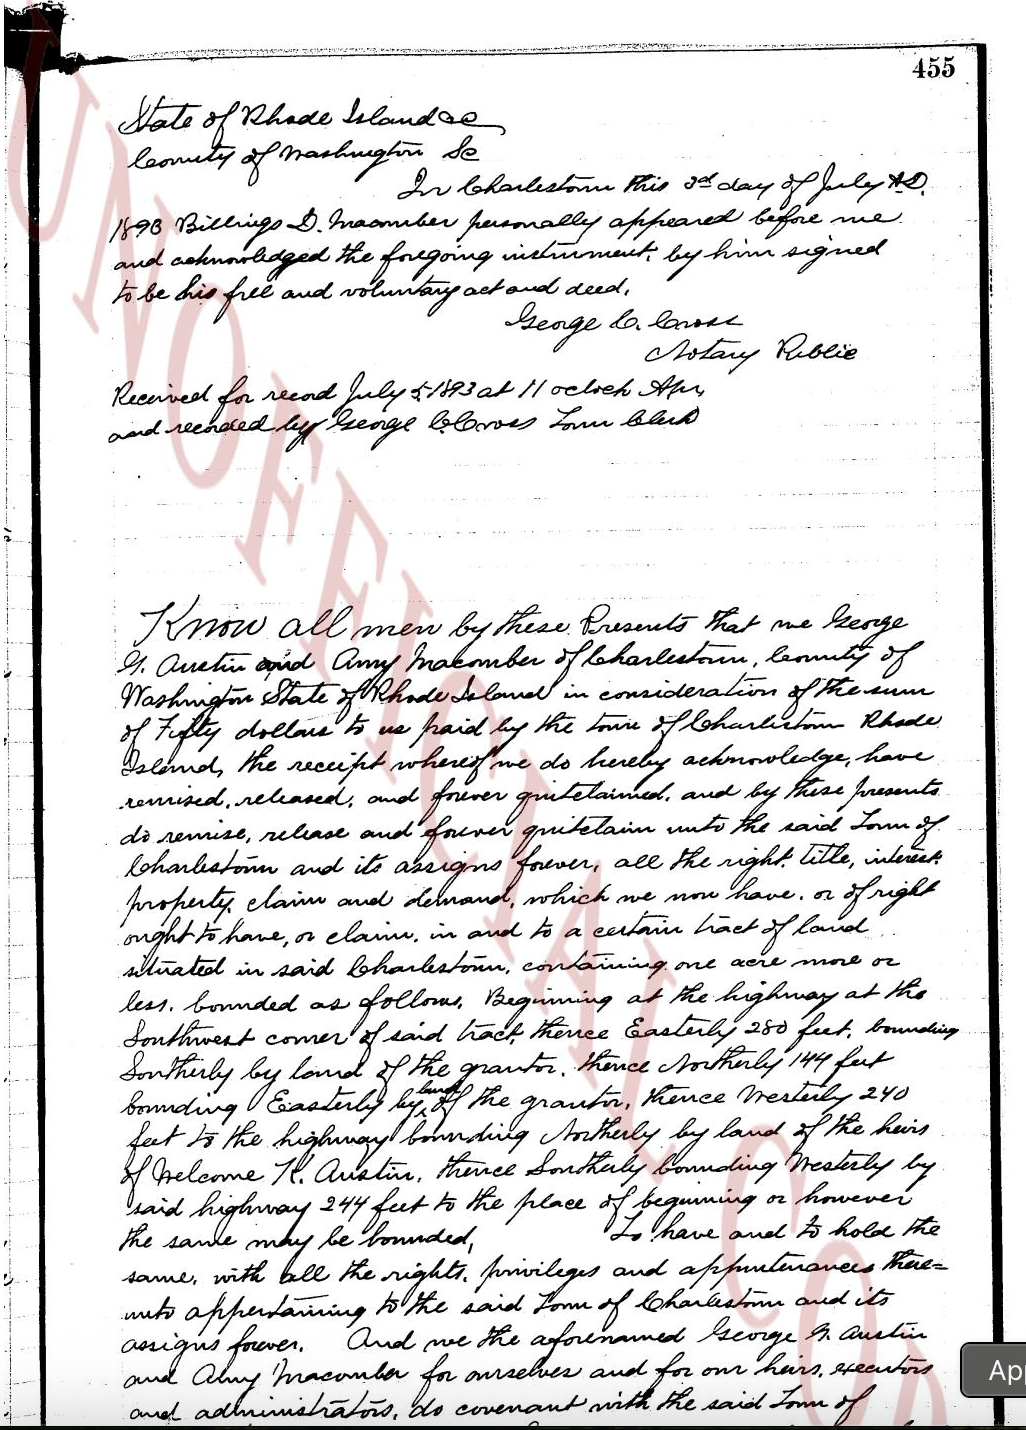 455
State of Rhode Island &c
County of Washington Sc
In Charlestown this 3d day of July A.D.
1893 Billings D. Macomber personally appeared before me
and acknowledged the foregoing instrument, by him signed
to be his free and voluntary act and deed.
George C. Cross
Notary Public
Received for record July 5, 1893 at 11 oclock Am,
and recorded by George C. Cross Town Clerk
Know all men by these Presents that we George
G. Austin and Amy Macomber of Charlestown, County of
Washington State of Rhode Island in consideration of the sum
of Fifty dollars to us paid by the town of Charlestown Rhode
Island, the receipt whereof we do hereby acknowledge, have
remised, released, and forever quitclaimed, and by these presents
do remise, release and forever quitclaim unto the said Town of
Charlestown and its assigns forever, all the right, title, interest,
property, claim and demand, which we now have, or of right
ought to have, or claim, in and to a certain tract of land
situated in said Charlestown, containing one acre more or
less, bounded as follows, Beginning at the highway at the
Southwest corner of said tract, thence Easterly 280 feet, bounding
Southerly by land of the grantor, thence Northerly 144 feet
bounding Easterly by land of the grantor, thence Westerly 240
feet to the highway bounding Northerly by land of the heirs
of Welcome K. Austin, thence Southerly bounding Westerly by
said highway 244 feet to the place of beginning or however
the same may be bounded, To have and to hold the
same, with all the rights, privileges and appurtenances there=
unto appertaining to the said Town of Charlestown and its
assigns forever. And we the aforenamed George G. Austin
and Amy Macomber for ourselves and for our heirs, executors
and administrators, do covenant with the said Town of
UNOFFICIAL CO
App